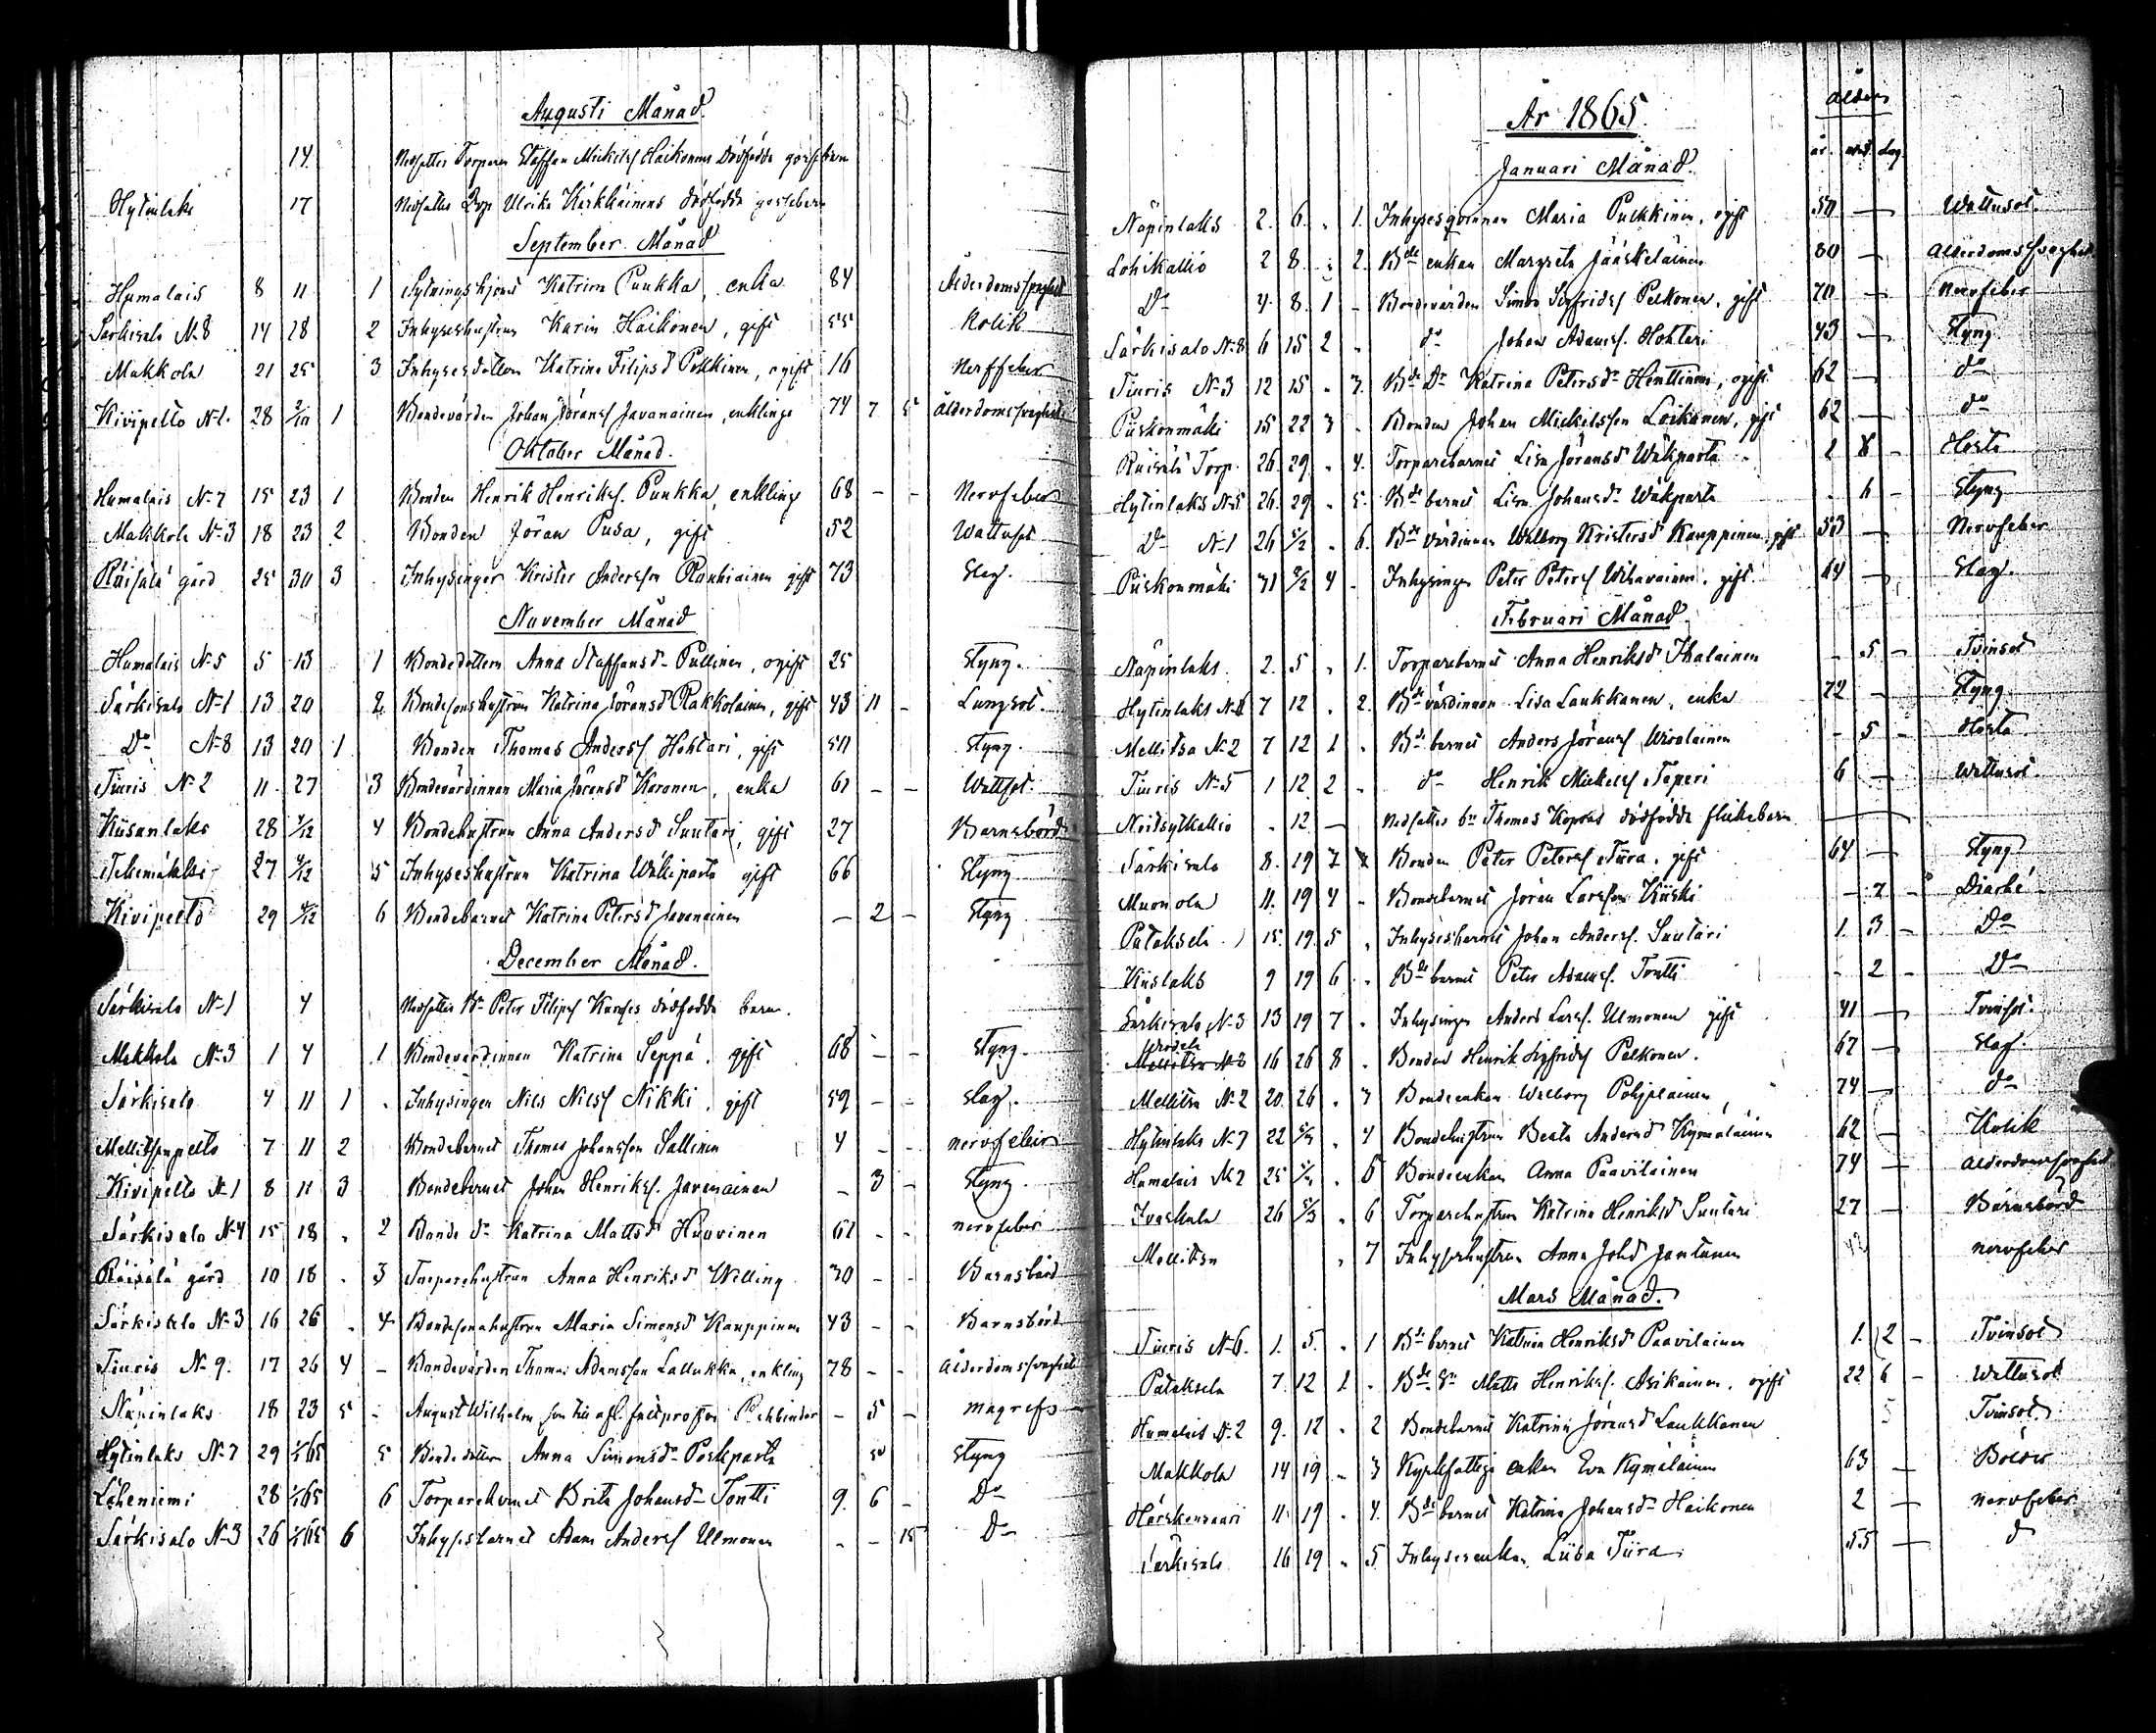 Augusti Månad.
14. Nedsattes Torparen Staffan Mickelss Haikonens dödfödda gossebarn
Hytinlaks 17 Nedsattes Ulrika Kärkkäinens dödfödda gossebarn
September Månad
Humalais 8 11 1 Sytningshjonet Katrina Puukka, enka 84 Ålderdomssvaghet
Särkisalo N 8 14 18 2 Inhyseshustrun Karin Haikonen, gift 55 Kolik
Makkola 21 25 3 Inhysesdottern Katrina Filipsd Pekkinen, ogift 16 Nerffeber
Kivipelto N 1. 28 2/10 1 Bondevärden Johan Jöranss Javanainen, enklinge 74 7 5 Ålderdomssvaghet
Oktober Månad.
Humalais N 7 15 23 1 Bonden Henrik Henrikss. Puukka, enkling 68 - - Nervfeber
Makkola N 3 18 23 2 Bonden Jöran Pusa, gift 52 Wattusot
Räisälä gård 25 30 3 Inhysingen Krister Andersson Raukiainen gift 73 Slag.
November Månad
Humalais N 5 5 13 1 Bondedottern Anna Staffansd Pullinen, ogift 25 Styng.
Särkisalo N 1 13 20 2 Bondesonshustrun Katrina Jöransd Rakkolainen, gift 43 11 - Lungsot.
Do N 8 13 20 1 Bonden Thomas Anderss Hohtari, gift 50 Styng.
Tiuris N 2 11 27 3 Bondevärdinnan Maria Jöransd Karonen, enka 61 - - Wattsot.
Kiisanlaks 28 4/12 4 Bondehustrun Anna Andersd Suutari, gift 27 Barnsbörd
27 4/12 5 Inhyseshustrun Katrina Wäkiparta gift 66 Styng
Kivipelto 29 4/12 6 Bondebarnet Katrina Petersd Javanainen - 2 - Styng
December Månad.
Särkisalo N 1 4 Nedsattes Bn Peter Filipss dödfödda barn.
Makkola N 3 1 4 1 Bondevärdinnan Katrina Seppä. gift 68 - - Styng.
Särkisalo 4 11 1 . Inhysingen Nils Nilss Nikki. gift 59 - - Slag.
Mellitsänpelto 7 11 2 Bondebarnet Thomas Johansson Sallinen 4 - - nervfeber
Kivipelto N 1 8 11 3 Bondebarnet Johan Henrikss. Javanainen - 3 - Styng.
Särkisalo N 4 15 18 . 2 Bonde do Katrina Mattsd Huuvinen 61 - - nervfeber
Räisälä gård 10 18 . 3 Torparehustrun Anna Henriksd Willing 30 - - Barnsbörd
Särkisalo N 3 16 26 . 4 Bondesonshustrun Maria Simonsd Kauppinen 43 - - Barnsbörd
Tiuris N 9. 17 26 4 - Bondevärden Thomas Adamsson Lallukka, enkling 78 - - Ålderdomssvaghet
Näpinlaks 18 23 5 - August Wilhelm son till Rehbinder - 5 - magrefs
Hytinlaks N 7 29 1/1 65 5 Bondedottern Anna Simonsd Poskiparta 50 Styng
Löheniemi 28 1/1 65 6 Torparebarnet Brita Johansd Tontti 9. 6 - Do
Särkisalo N 3 26 1/1 65 6 Inhysesbarnet Adam Anderss Ulmonen - - 15 Do
År 1865.
Ålder
år. md. dag.
Januari Månad.
Näpinlaks 2. 6. . 1. Inhysesqvinnan Maria Pulkkinen, ogift 50 — Wattusot.
Lohikallio 2 8. . 2. Bde enkan Margreta Jääskeläinen 80 — Ålderdomssvaghet
Do 4. 8. 1 - Bondevärden Simon Sigfridss Pelkonen, gift 70 — Nervfeber
Särkisalo N 8 6 15 2 . do Johan Adamss. Hohtari 43 — Styng
Tiuris N 3 12 15 . 3. Bde Dr Katrina Petersdr Henttinen, ogift 62 — do
Piiskonmäki 15 22 3 . Bonden Johan Mickelsson Loikanen, gift 62 — do
Räisälä Torp. 26. 29 . 4. Torparebarnet Lisa Jöransd Wäkiparta 2 8 - Hosta
Hytinlaks N 5 26. 29 . 5. Bde barnet Lisa Johansdr Wäkiparta . 6 - Styng
Do N 1 26 5/2 . 6. Bde värdinnan Walborg Kristersd Kauppinen, gift 53 — Nervfeber
Piiskonmäki 31 5/2 4 - Inhysingen Peter Peterss Wihavainen, gift. 64 — Slag.
Februari Månad
Näpinlaks. 2. 5 . 1. Torparebarnet Anna Henriksd Ihalainen - 5 - Tvinsot
Hytinlaks N 8 7 12 . 2. Bde värdinnan Lisa Laukkanen, enka 72 — Styng
Mellitsä N 2 7 12 1 . Bde barnet Anders Jöranss Wirolainen - 5 - Hosta
Tiuris N 5 1 12 2 . do Henrik Mickelss Teperi 6 — Wattusot.
Noitsytkallio . 12 — Nedsattes bn Thomas Kopras dödfödda flickebarn
Särkisalo 8. 19 3 Bonden Peter Peterss Tiira. gift 64 — Styng
Muonola 11. 19 4 - Bondebarnet Jöran Larsson Kiiski - 7 - Diarhé
Pataksela 15. 19. 5 . Inhysesbarnet Johan Anderss. Suutari 1. 3 — Do
Kiislaks 9 19 6 . Bde barnet Peter Adamss. Tontti - 2 - Do
Särkisalo N 3 13 19 7 . Inhysingen Anders Larss. Ulmonen gift 41 — Tvinsot.
16 26 8 . Bonden Henrik Sigfridss Pelkonen. 67 — Slag.
Mellitsä N 2 20. 26 . 3 Bondeenkan Walborg Pohjolainen, 74 — do
Hytinlaks N 7 22 5/3 . 4 Bondehustrun Beata Andersd Kymäläinen 62 — Kolik
Humalais N 2 25 5/3 . 5 Bondeenkan Anna Paavilainen 74 — Ålderdomssvaghet
Ivaskala 26 5/3 . 6 Torparehustrun Katrina Henriksd Suutari 27 — Barnsbörd
Mellitsä . 7 Inhyseshustrun Anna Johd Jantunen nervfeber
Mars Månad.
Tiuris N 6. 1. 5. . 1 Bde barnet Katrina Henriksd Paavilainen 1. 2 - Tvinsot
Pataksela 7. 12 1 . Bde Sn Matts Henrikss. Asikainen. ogift 22 6 - Wattusot
Humalais N 2 9. 12 . 2 Bondebarnet Katrina Jöransd Laukkanen 5 Tvinsot
Makkola 14 19 . 3 Kyrkfattiga enkan Eva Kymäläinen 63 — Bölder
Härskensaari 11. 19 . 4. Bde barnet Katrina Johansdr Haikonen 2 — nervfeber
Särkisalo 16 19 . 5 Inhysesenkan Liisa Tiira 55 — d